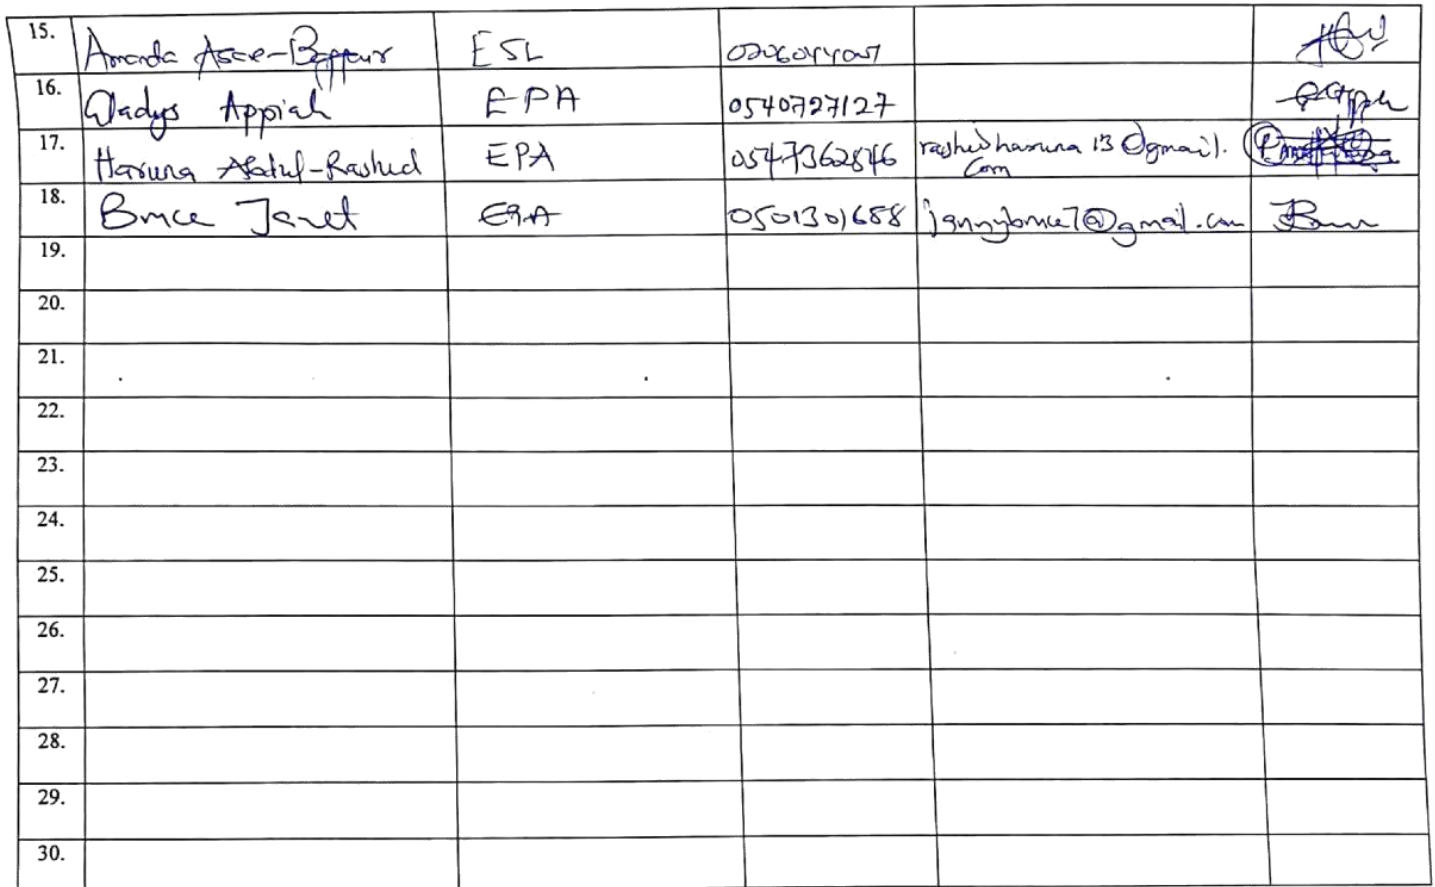 15. Amanda ESL
16. Gladys Appiah EPA 0540727127
17. Haruna Abdul-Rashid EPA 0547362846 rashidharuna13@gmail.
com
18. Bruce Janet EPA 0501301688 jannybruce7@gmail.com
19.
20.
21.
22.
23.
24.
25.
26.
27.
28.
29.
30.